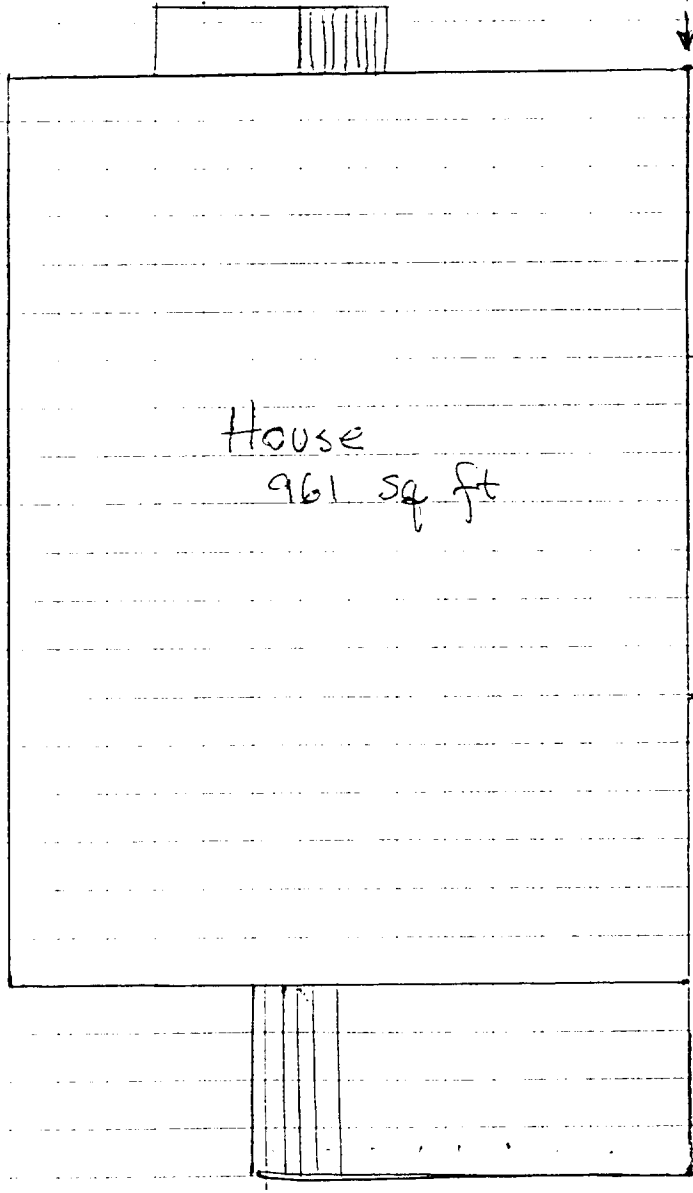 House
961 sq ft